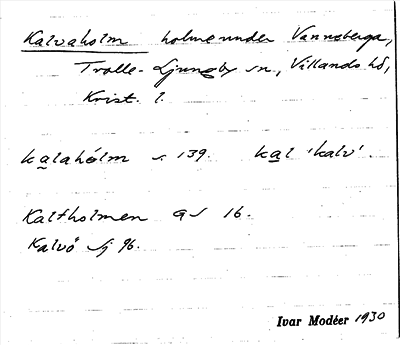 Kalvaholm holme under Vannsberga,
Trolle-Ljungby sn, Villands hd,
Krist. l.
kalahólm s. 139. kal 'kalv'.
Kalfholmen GS 16.
Kalvö Sj 96.
Ivar Modéer 1930